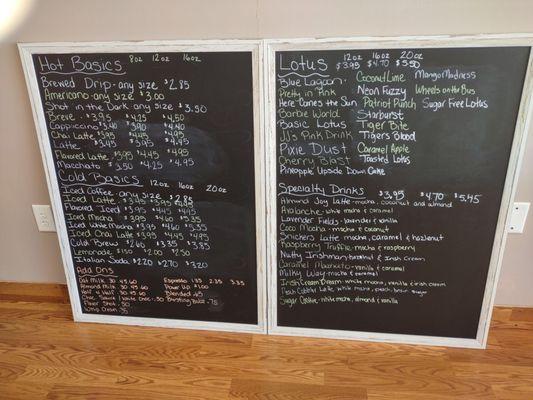 Hot Basics 8oz 12oz 16oz
Brewed Drip - any size $2.85
Americano - any size $3.00
Shot in the Dark any size $3.50
Breve - $3.95 $4.25 $4.50
Cappuccino $3.90 $4.40
Chai Latte $3.95 $4.45
Latte $3.45 $3.95 $4.45
Flavored Latte $3.95 $4.45 $4.95
Macchiato $4.95
Cold Basics 12oz 16oz 20oz
Iced Coffee - any size $2.85
Iced Latte $3.45 $3.95 $4.45
Flavored Iced $3.95 $4.45
Iced Mocha $3.95 $4.60 $5.35
Iced White Mocha $3.95 $4.60 $5.35
Iced Chai Latte $3.95 $4.45
Cold Brew $2.60 $3.35 $3.85
Lemonade $1.50 $2.00 $2.50
Italian Soda $2.20 $2.70 $3.20
Add Ons
Oat Milk .30 .45 .60 Espresso
Almond Milk .30 .45 .60 Power Up $1.00
Half & Half .30 .45 .60 Blended
Bursting
Flavor Shot .50
Whip Cream
Lotus 12oz 16oz 20oz
$3.95 $4.70 $5.50
Blue Lagoon Coconut Lime Mango Madness
Pretty in Pink Neon Fuzzy Wheels on the Bus
Here Comes the Sun Patriot Punch Sugar Free Lotus
Barbie World Starburst
Basic Lotus Tiger Bite
JJ's Pink Drink Tigers Blood
Pixie Dust Caramel Apple
Cherry Blast Toasted Lotus
Pineapple Upside Down Cake
Specialty Drinks $3.95 $4.70 $5.45
Almond Joy Latte - mocha, coconut and almond
Avalanche - white mocha & caramel
Lavender Fields - lavender & vanilla
Coco Mocha - mocha & coconut
Snickers Latte mocha, caramel & hazelnut
Raspberry Truffle - mocha & raspberry
Nutty Irishman - & Irish Cream
Caramel - vanilla & caramel
Milky Way - mocha & caramel
Irish Cream Dream - white mocha, vanilla & irish cream
Peach Cobbler Latte white mocha, peach, brown sugar
Sugar Cookie - white mocha, almond & vanilla